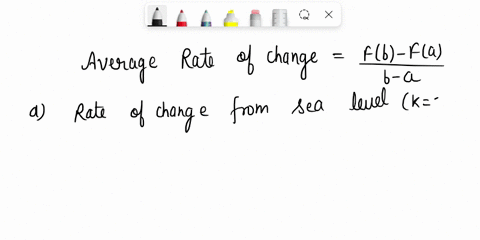 Average Rate of change = F(b)-F(a) / b-a
a) Rate of change from sea level (K=-